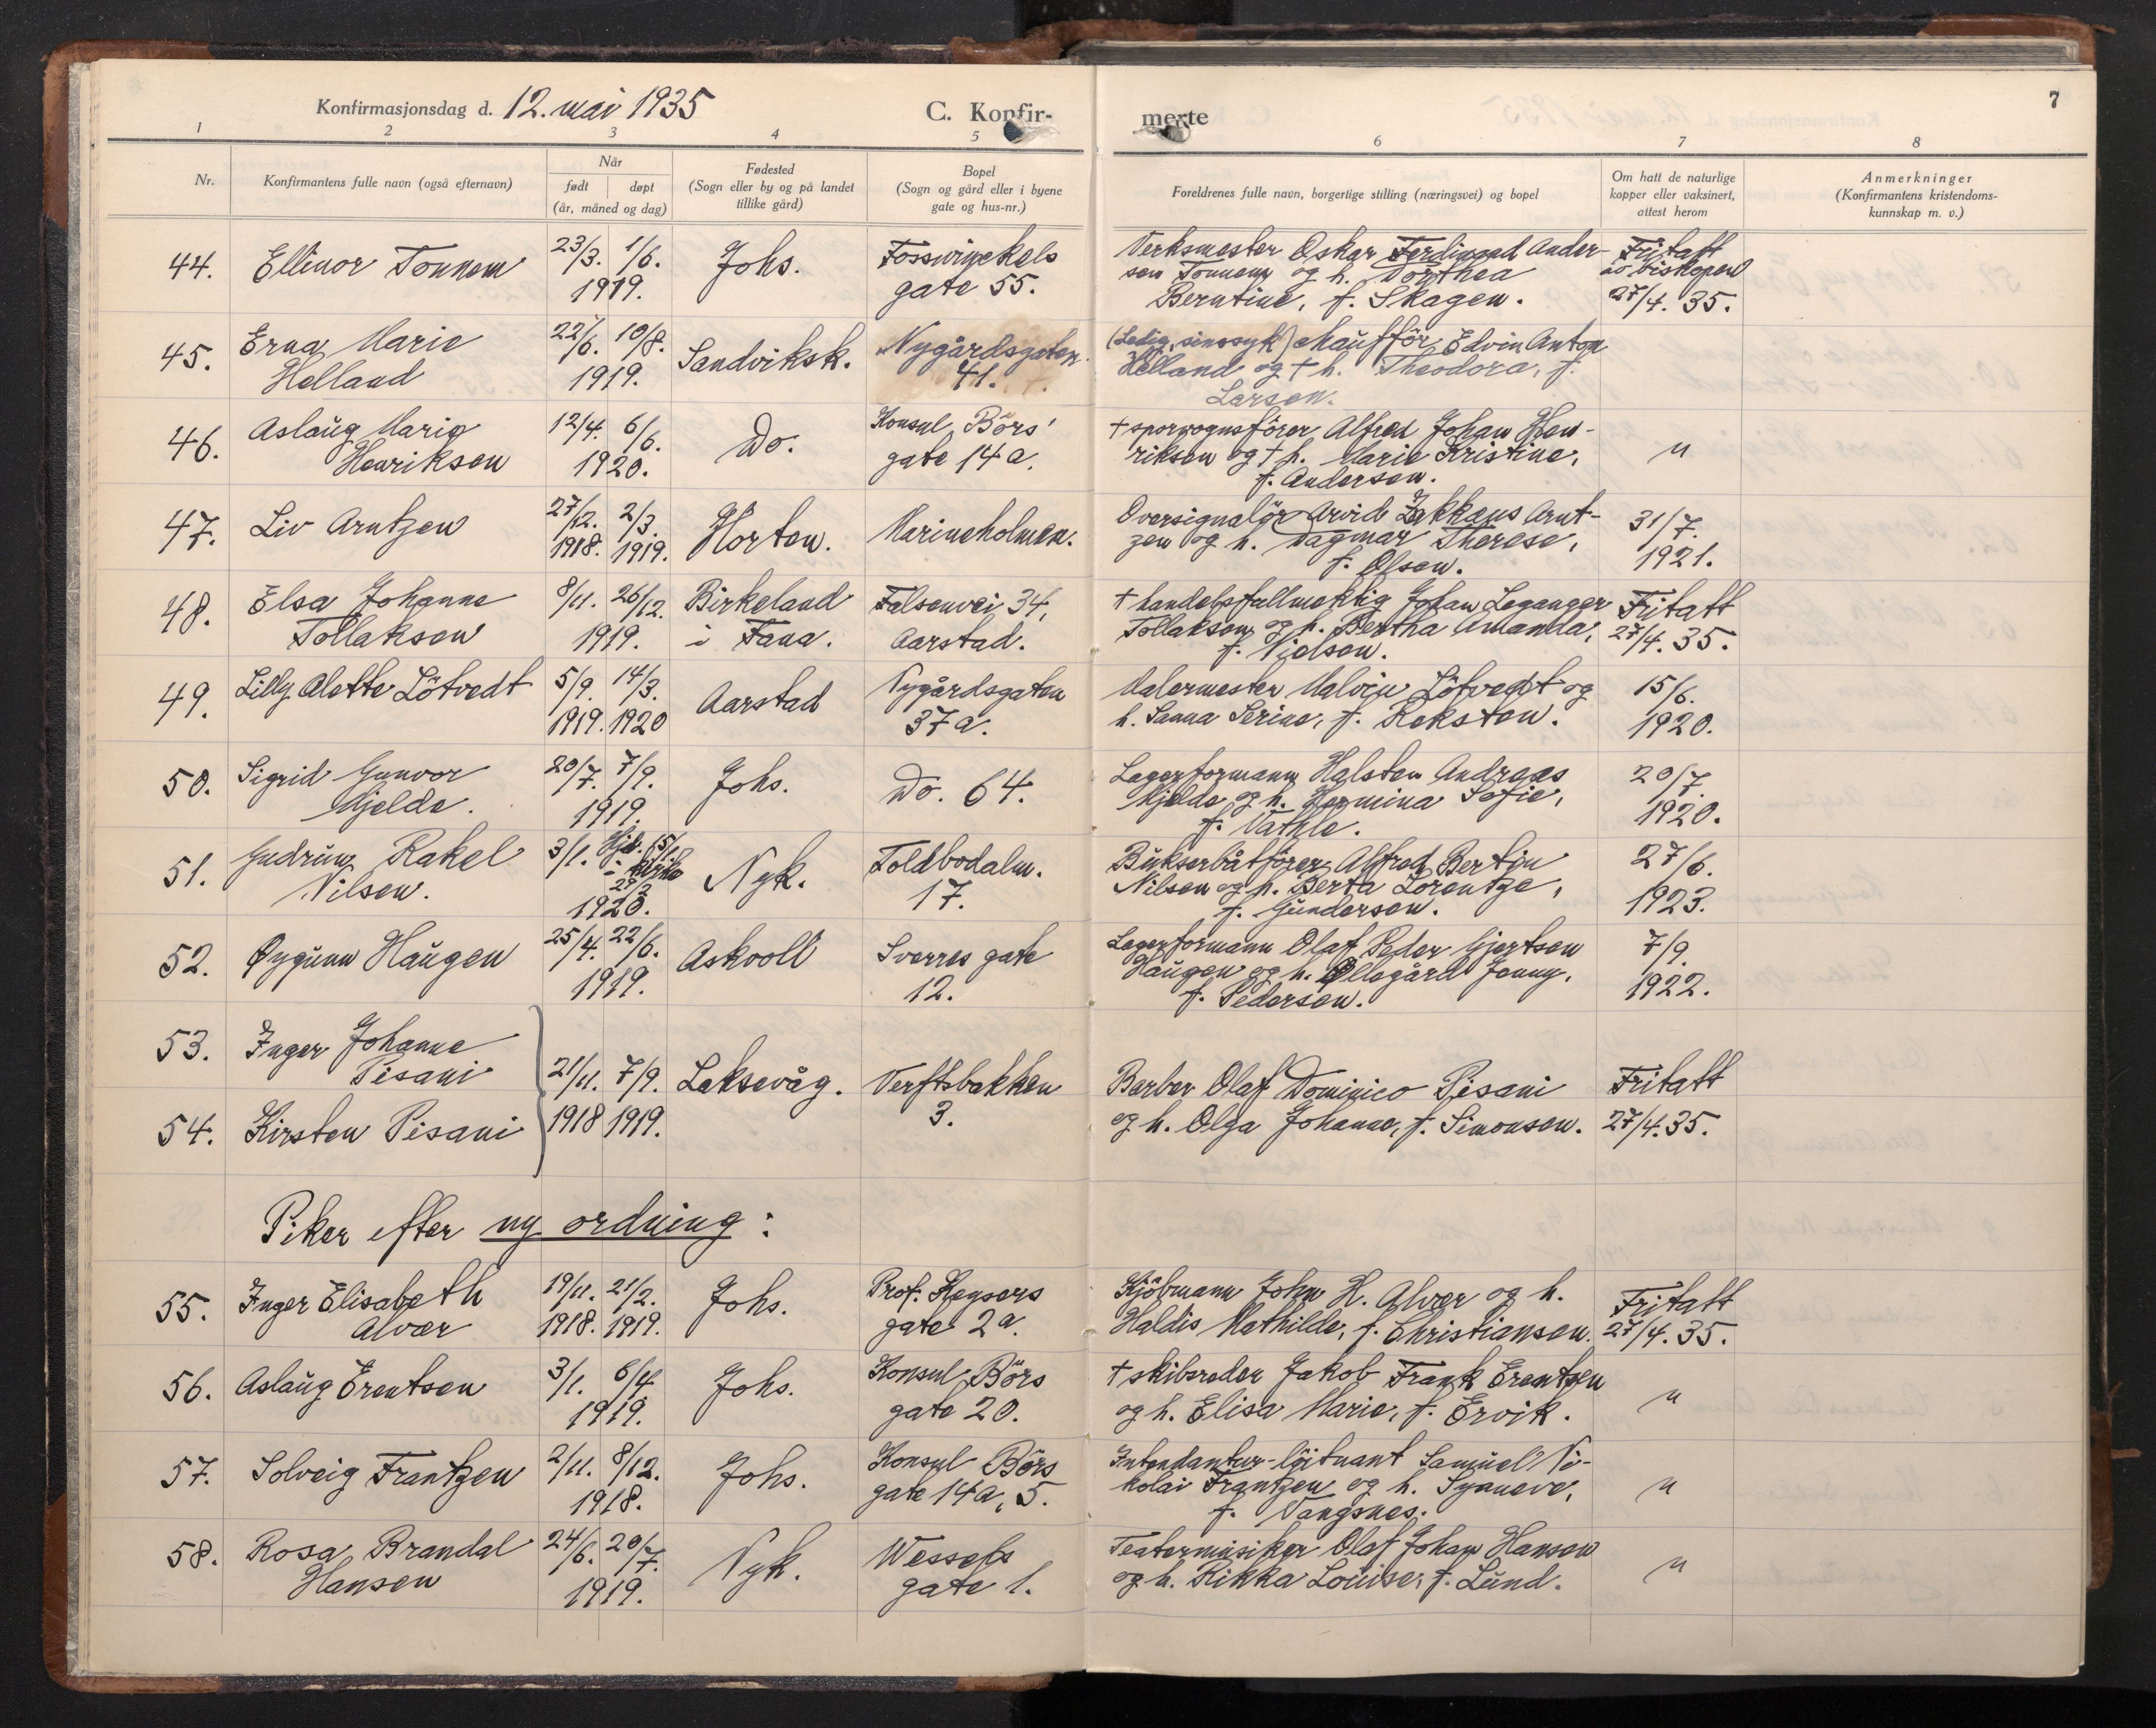 Konfirmasjonsdag d. 12. mai 1935
C. Konfir-
merte
7
1 2 3 4 5 6 7 8
Nr.
Konfirmantens fulle navn (også efternavn)
Når
født døpt
(år, måned og dag)
Fødested
(Sogn eller by og på landet
tillike gård)
Bopel
(Sogn og gård eller i byene
gate og hus-nr.)
Foreldrenes fulle navn, borgerlige stilling (næringsvei) og bopel
Om hatt de naturlige
kopper eller vaksinert,
attest herom
Anmerkninger
(Konfirmantens kristendoms-
kunnskap m. v.)
44. Ellinor Tonnem
23/3. 1/6.
1919.
Johs.
Fosswinckels
gate 55.
Verksmester Oskar Ferdinand Ander-
sen Tonnem og h. Dorthea
Berntine, f. Skagen.
Fritatt
av biskopen
27/4. 35.
45. Erna Marie
Helland
22/6. 10/8.
1919.
Sandviksk.
Nygårdsgaten
41.
(Ledig, sinssyk) chaufför Edvin Anton
Helland og † h. Theodora, f.
Larsen.
46. Aslaug Marie
Henriksen
12/4. 6/6.
1920.
Do.
Konsul Börs'
gate 14 a.
† sporvognsförer Alfred Johan Hen-
riksen og † h. Marie Kristine,
f. Andersen.
"
47. Liv Arntzen
27/12. 2/3.
1918. 1919.
Horten.
Marineholmen.
Oversignalör Arvid Zakkæus Arnt-
zen og h. Dagmar Therese,
f. Olsen.
31/7.
1921.
48. Elsa Johanne
Tollaksen
8/11. 26/12.
1919.
Birkeland
i Fana.
Falsenvei 34,
Aarstad.
† handelsfullmektig Johan Leganger
Tollaksen og h. Bertha Amanda,
f. Nielsen.
Fritatt
27/4. 35.
49. Lilly Alette Lötvedt
5/9. 14/3.
1919. 1920
Aarstad
Nygårdsgaten
37 a.
Malermester Malvin Lötvedt og
h. Sanna Serine, f. Reksten.
15/6.
1920.
50. Sigrid Gunvor
Mjelde.
20/7. 7/9.
1919.
Johs.
Do. 64.
Lagerformann Halsten Andreas
Mjelde og h. Hermina Sofie,
f. Vatle.
20/7.
1920.
51. Gudrun Rakel
Nilsen.
3/1. Hjd. 15/1
i kirke
29/3
1920.
Nyk.
Toldbodalm.
17.
Bukserbåtförer Alfred Bertin
Nilsen og h. Berta Lorentze,
f. Gundersen.
27/6.
1923.
52. Øygunn Haugen
25/4. 22/6.
1919.
Askvoll
Sverres gate
12.
Lagerformann Olaf Peder Gjertsen
Haugen og h. Ollegård Jenny,
f. Pedersen.
7/9.
1922.
53. Inger Johanne
Pisani
54. Kirsten Pisani
21/11. 7/9.
1918 1919.
Laksevåg.
Verftsbakken
3.
Barber Olaf Dominico Pisani
og h. Olga Johanne, f. Simonsen.
Fritatt
27/4. 35.
Piker efter ny ordning:
55. Inger Elisabeth
Alvær
19/11. 21/2.
1918. 1919.
Johs.
Prof. Keysers
gate 2 a.
Kjöbmann John H. Alvær og h.
Haldis Mathilde, f. Christiansen.
Fritatt
27/4. 35.
56. Aslaug Erentsen
3/1. 6/4
1919.
Johs.
Konsul Börs
gate 20.
† skibsreder Jakob Frank Erentsen
og h. Elisa Marie, f. Ervik.
"
57. Solveig Frantzen
2/11. 8/12.
1918.
Johs.
Konsul Börs
gate 14 a, 5.
Intendantur-löitnant Samuel Ni-
kolai Frantzen og h. Synneve,
f. Vangsnes.
"
58. Rosa Brandal
Hansen
24/6. 20/7.
1919.
Nyk.
Wessels
gate 1.
Teatermusiker Olaf Johan Hansen
og h. Rikka Louise, f. Lund.
"